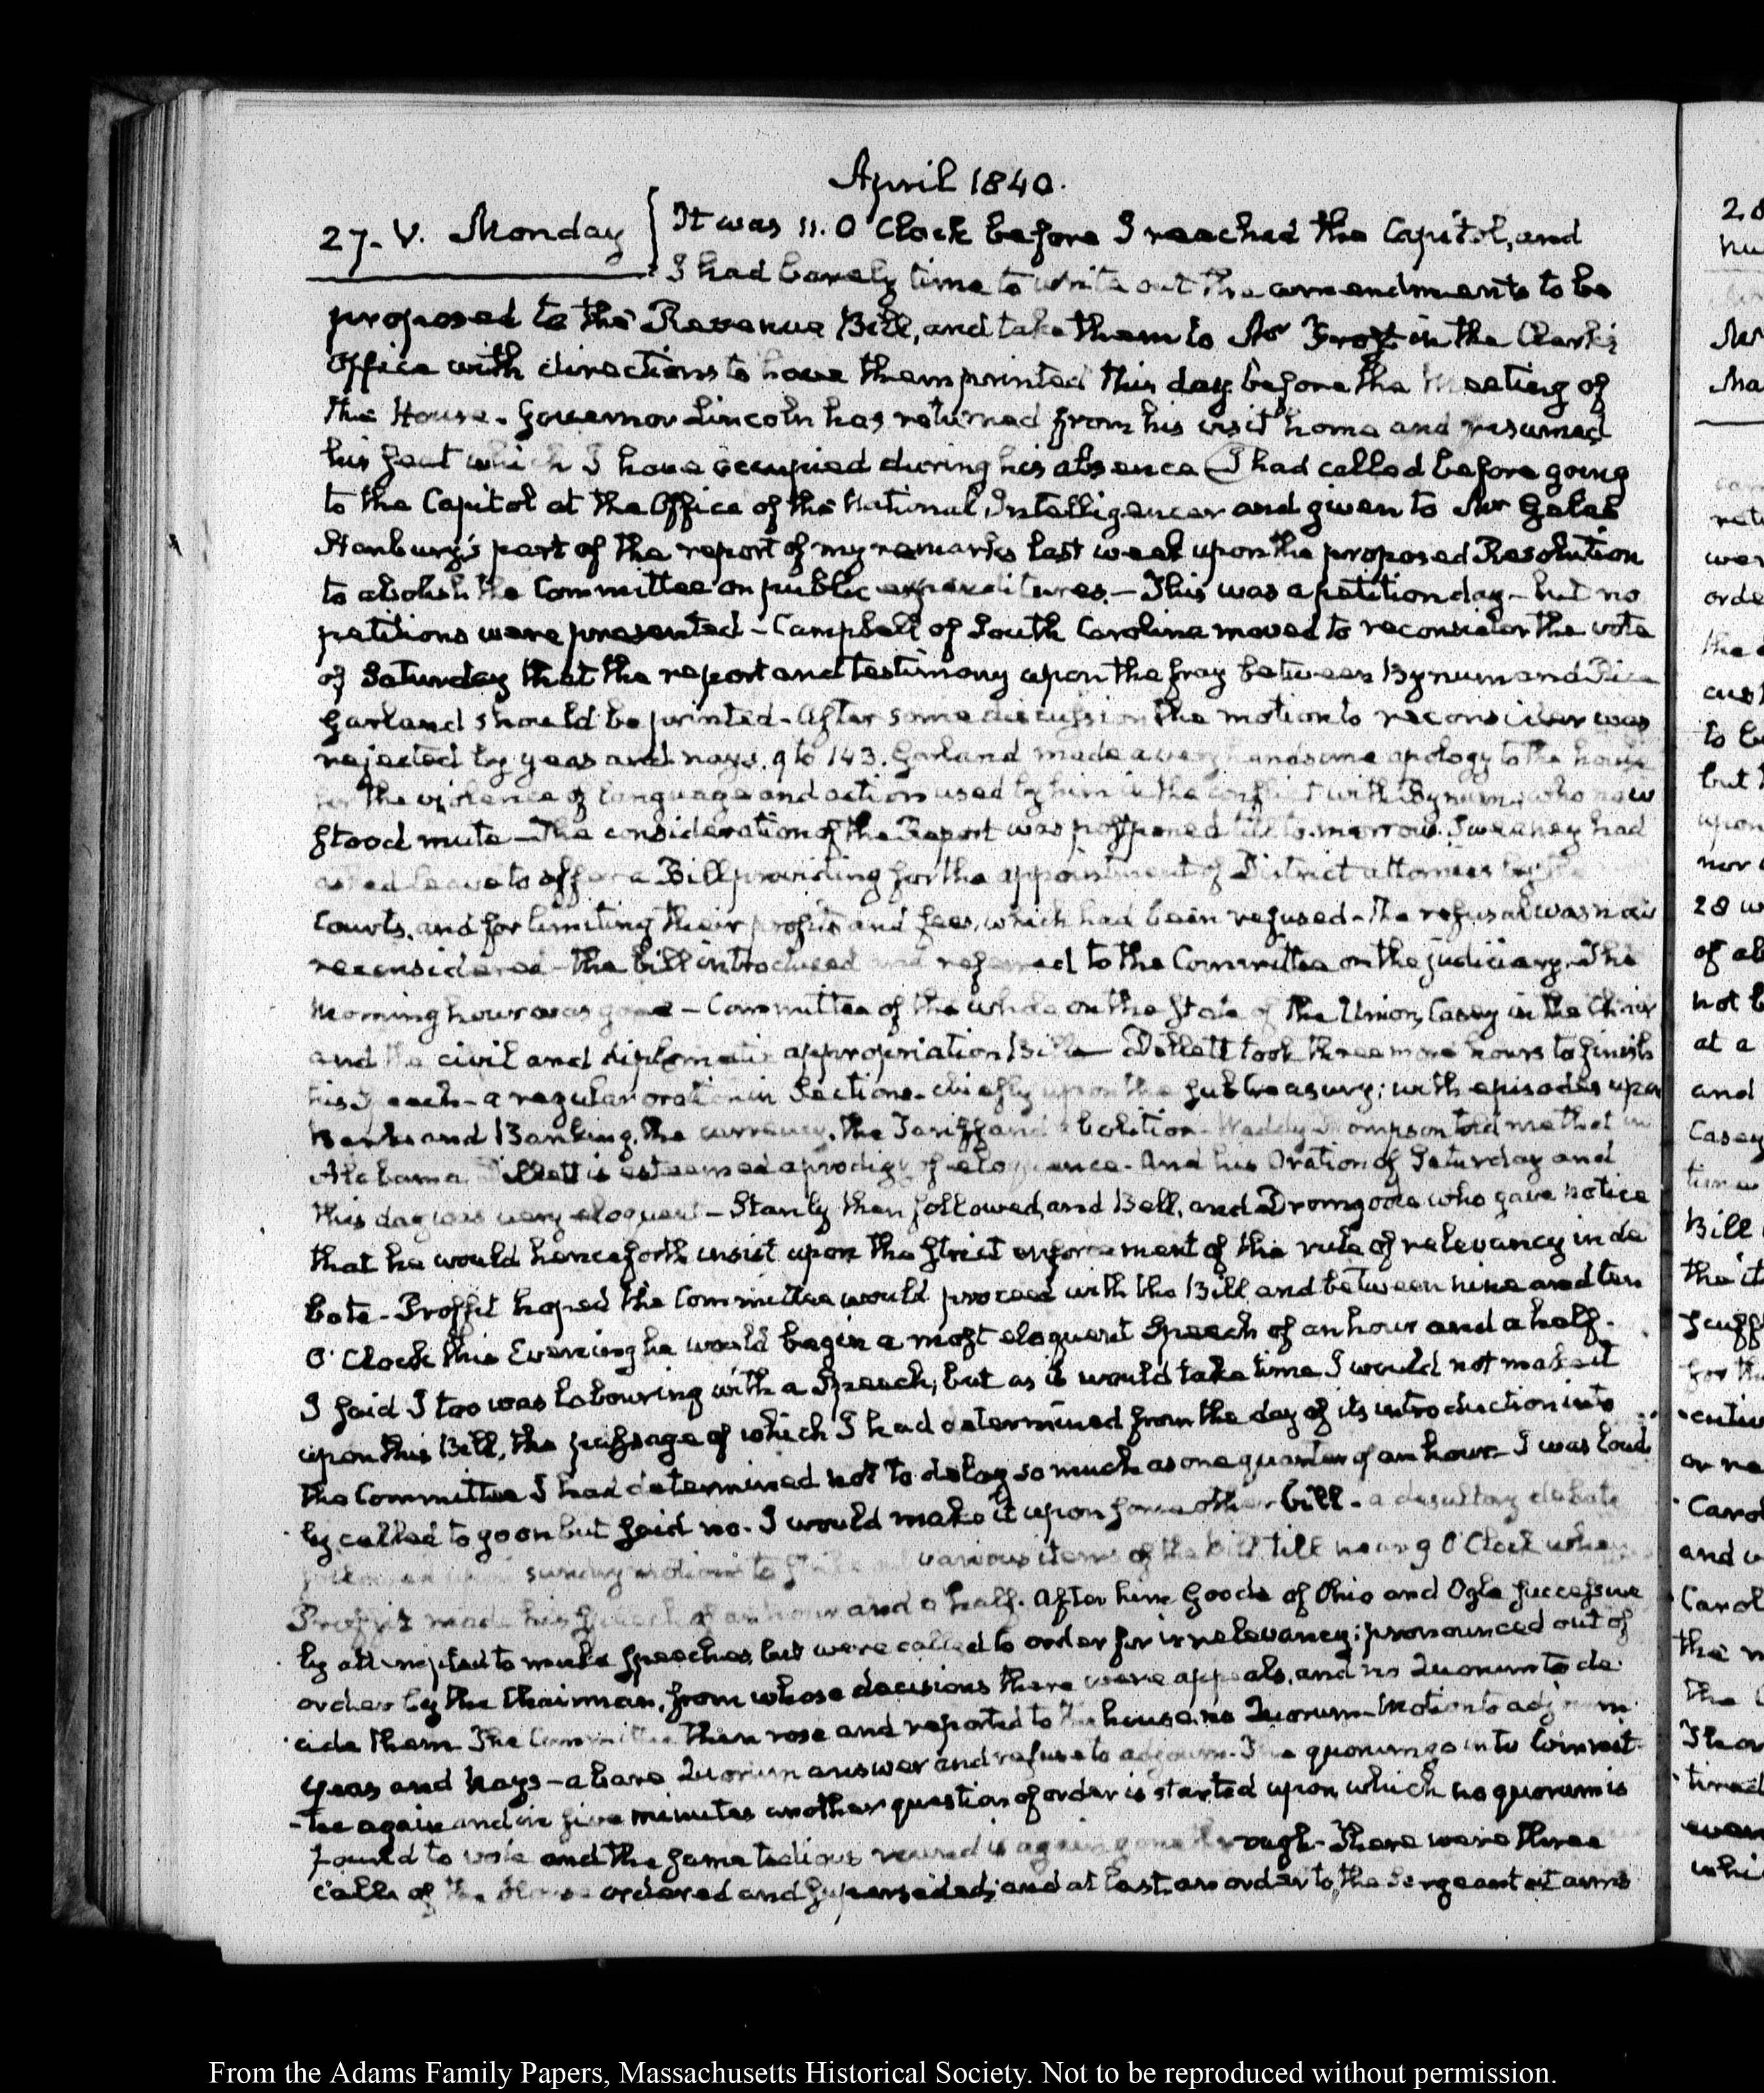 April 1840.
27. V. Monday
It was 11. O'Clock before I reached the Capitol, and
I had barely time to write out the amendments to be
proposed to the Revenue Bill, and take them to Mr Frost in the Clerk's
Office with directions to have them printed this day before the Meeting of
the House. Governor Lincoln has returned from his visit home and resumed
his seat which I have occupied during his absence I had called before going
to the Capitol at the Office of the National Intelligencer and given to Mr Gales
Stanbury's part of the report of my remarks last week upon the proposed Resolution
to abolish the Committee on public expenditures. — This was a petition day — but no
petitions were presented — Campbell of South Carolina moved to reconsider the vote
of Saturday that the report and testimony upon the fray between Bynum and Rice
Garland should be printed — After some discussion the motion to reconsider was
rejected by yeas and nays. 9 to 143. Garland made a very handsome apology to the house
for the violence of language and action used by him in the conflict with Bynum, who now
stood mute — The consideration of the Report was postponed till to-morrow. Sweeney had
asked leave to offer a Bill providing for the appointment of District attornies by the
Courts, and for limiting their profits and fees, which had been refused — The refusal was now
reconsidered — the bill introduced and referred to the Committee on the judiciary. The
Morning hour was gone — Committee of the whole on the State of the Union, Casey in the Chair
and the civil and diplomatic appropriation Bill — Dellett took three more hours to finish
his Speech — a regular oration in Sections — chiefly upon the Subtreasury; with episodes upon
Banks and Banking, the currency, the Tariff and abolition — Waddy Thompson told me that in
Alabama Dellett is esteemed a prodigy of eloquence. And his Oration of Saturday and
this day was very eloquent — Stanly then followed, and Bell, and Dromgoole who gave notice
that he would henceforth insist upon the strict enforcement of the rule of relevancy in de
bate — Proffit hoped the Committee would proceed with the Bill and between nine and ten
O'Clock this Evening he would begin a most eloquent Speech of an hour and a half.
I said I too was labouring with a Speech, but as it would take time I would not make it
upon this Bill, the passage of which I had determined from the day of its introduction into
the Committee I had determined not to delay so much as one quarter of an hour — I was loud
ly called to go on but said no. I would make it upon some other bill — a desultory debate
followed upon sundry motions to strike out various items of the bill till near 9 O'Clock when
Proffit made his speech of an hour and a half. After him Goode of Ohio and Ogle successive
ly attempted to make speeches, but were called to order for irrelevancy; pronounced out of
order by the Chairman, from whose decisions there were appeals, and no Quorum to de
cide them. The Committee then rose and reported to the house no Quorum — Motion to adjourn
yeas and nays — a bare Quorum answer and refuse to adjourn. The quorum go into Commit
-tee again and in five minutes another question of order is started upon which no quorum is
found to vote and the same tedious round is again gone through. There were three
calls of the House ordered and superseded; and at last, an order to the Sergeant at arms
From the Adams Family Papers, Massachusetts Historical Society. Not to be reproduced without permission.